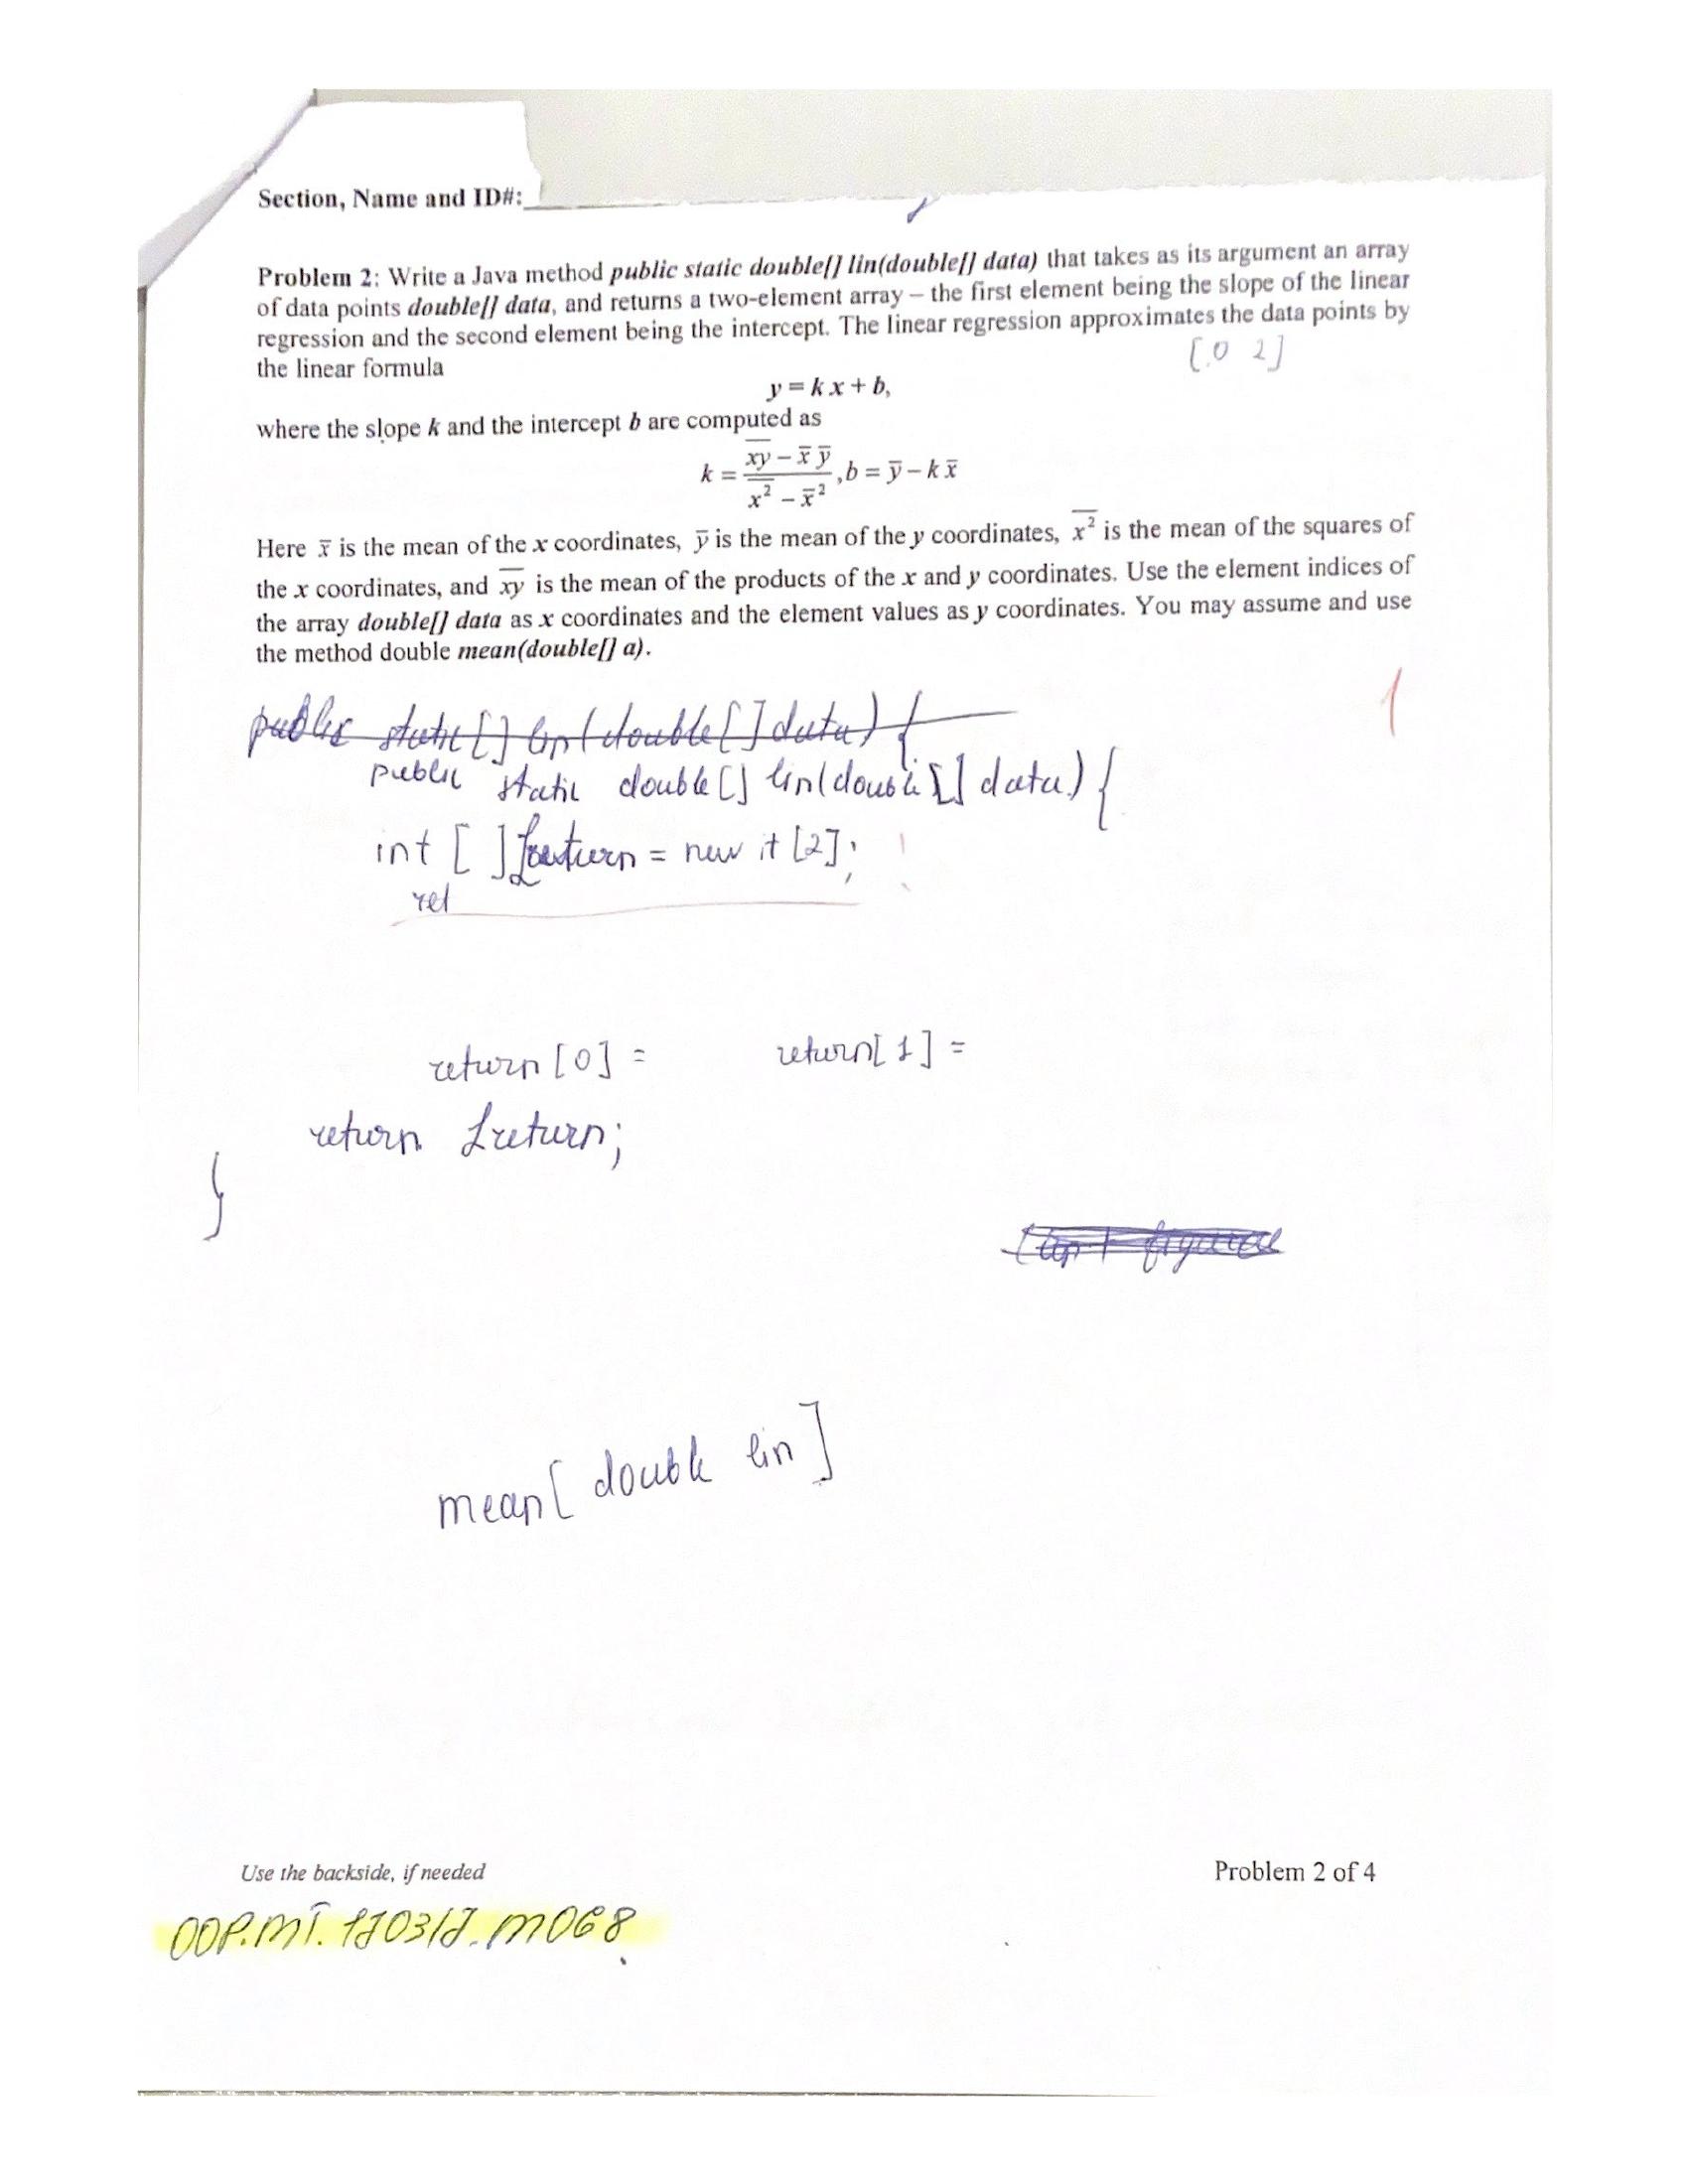 Section, Name and ID#:
Problem 2: Write a Java method public static double[] lin(double[] data) that takes as its argument an array
of data points double[] data, and returns a two-element array – the first element being the slope of the linear
regression and the second element being the intercept. The linear regression approximates the data points by
the linear formula
[.0 2]
y = k x + b,
where the slope k and the intercept b are computed as
k = (x̅y̅ − x̅ y̅) / (x̅²̅ − x̅²), b = y̅ − k x̅
Here x̅ is the mean of the x coordinates, y̅ is the mean of the y coordinates, x̅²̅ is the mean of the squares of
the x coordinates, and x̅y̅ is the mean of the products of the x and y coordinates. Use the element indices of
the array double[] data as x coordinates and the element values as y coordinates. You may assume and use
the method double mean(double[] a).
1
public static [] lin(double[] data) {
public static double[] lin(double[] data) {
int [ ] = new it [2]; !
ret
return [0] = return[1] =
return Lreturn;
}
mean[ double lin ]
Use the backside, if needed
Problem 2 of 4